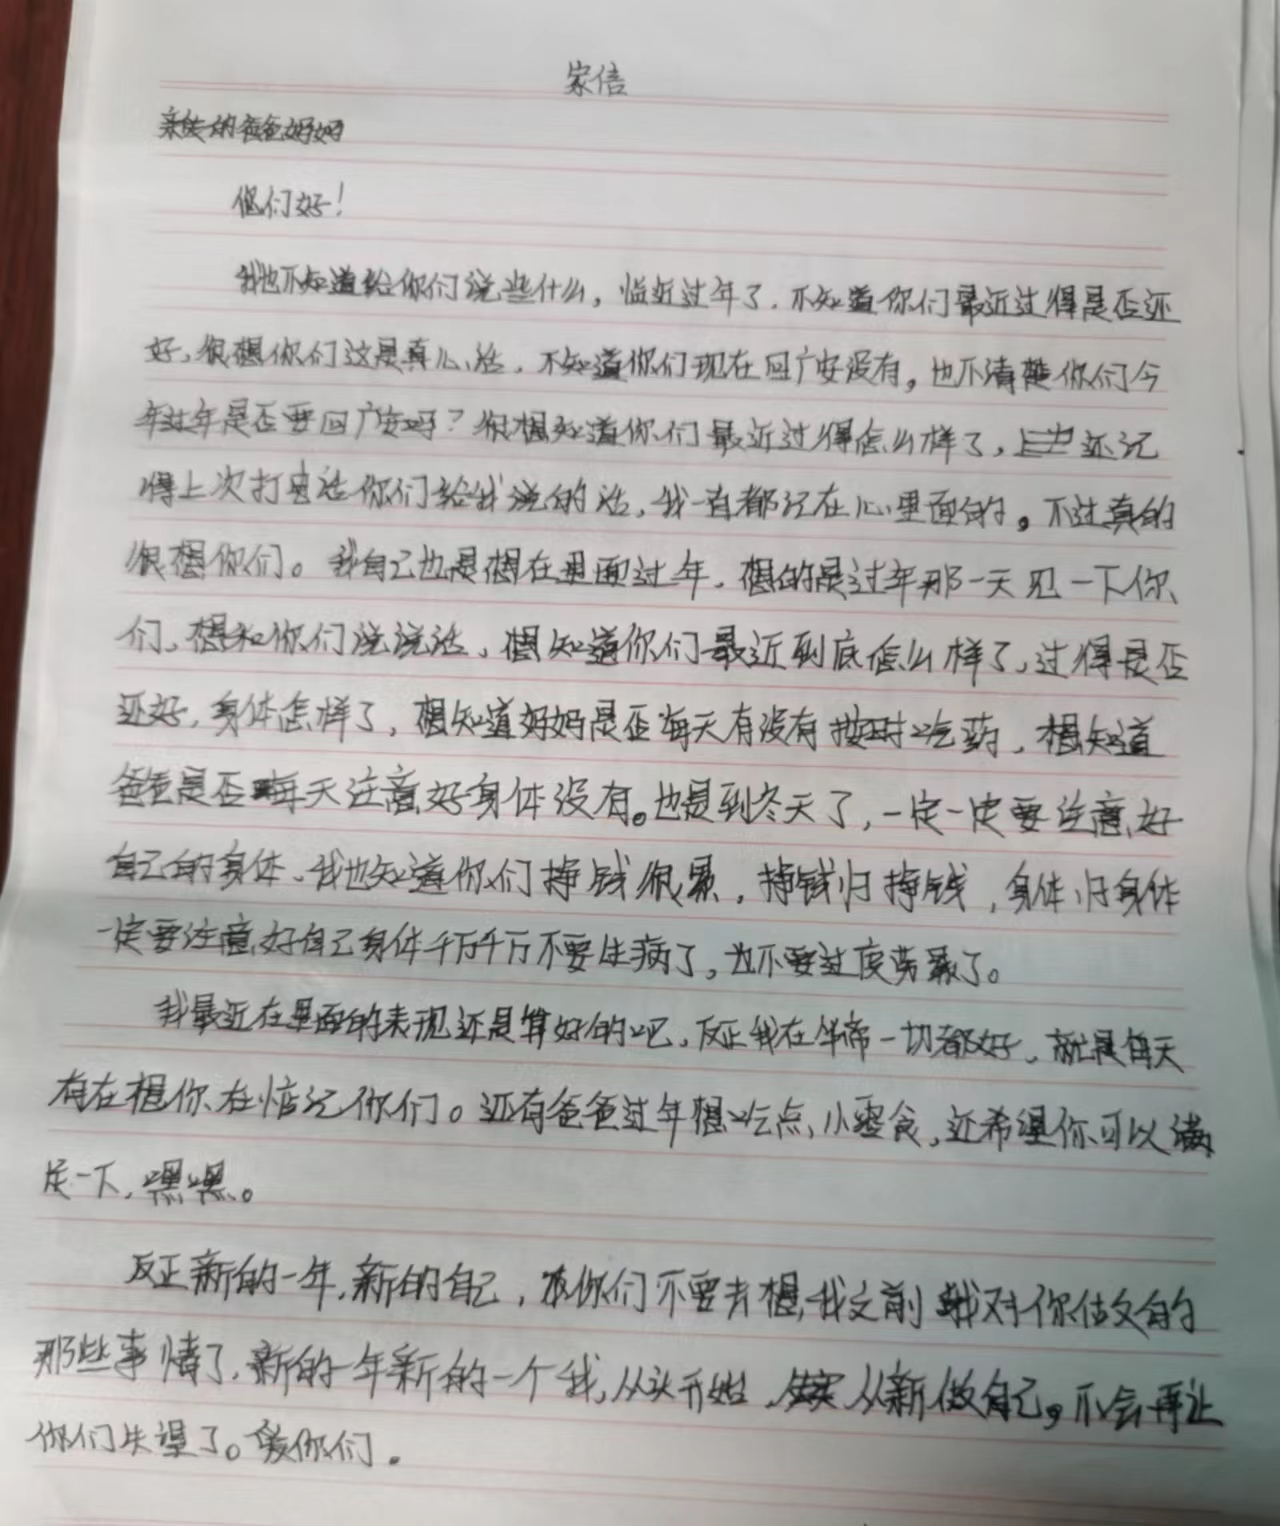 家信
亲爱的爸爸妈妈
你们好!
我也不知道给你们说些什么,临近过年了.不知道你们最近过得是否还
好,很想你们这是真心话,不知道你们现在回广安没有,也不清楚你们今
年过年是否要回广安吗?很想知道你们最近过得怎么样了,还记
得上次打电话你们给我说的话,我一直都记在心里面的。不过真的
很想你们。我自己也是想在里面过年,想的是过年那一天见一下你
们,想和你们说说话,想知道你们最近到底怎么样了,过得是否
还好,身体怎样了,想知道妈妈是否每天有没有按时吃药,想知道
爸爸是否每天注意好身体没有。也是到冬天了,一定一定要注意好
自己的身体、我也知道你们挣钱很累,挣钱归挣钱,身体归身体
一定要注意好自己身体千万千万不要生病了,也不要过度劳累了。
我最近在里面的表现还是算好的吧,反正我在华蒂一切都好,就是每天
有在想你在惦记你们。还有爸爸过年想吃点小零食,还希望你可以满
足一下,嘿嘿。
反正新的一年,新的自己,你们不要去想我之前我对你做的
那些事情了,新的一年新的一个我,从头开始,从新做自己。不会再让
你们失望了。爱你们.